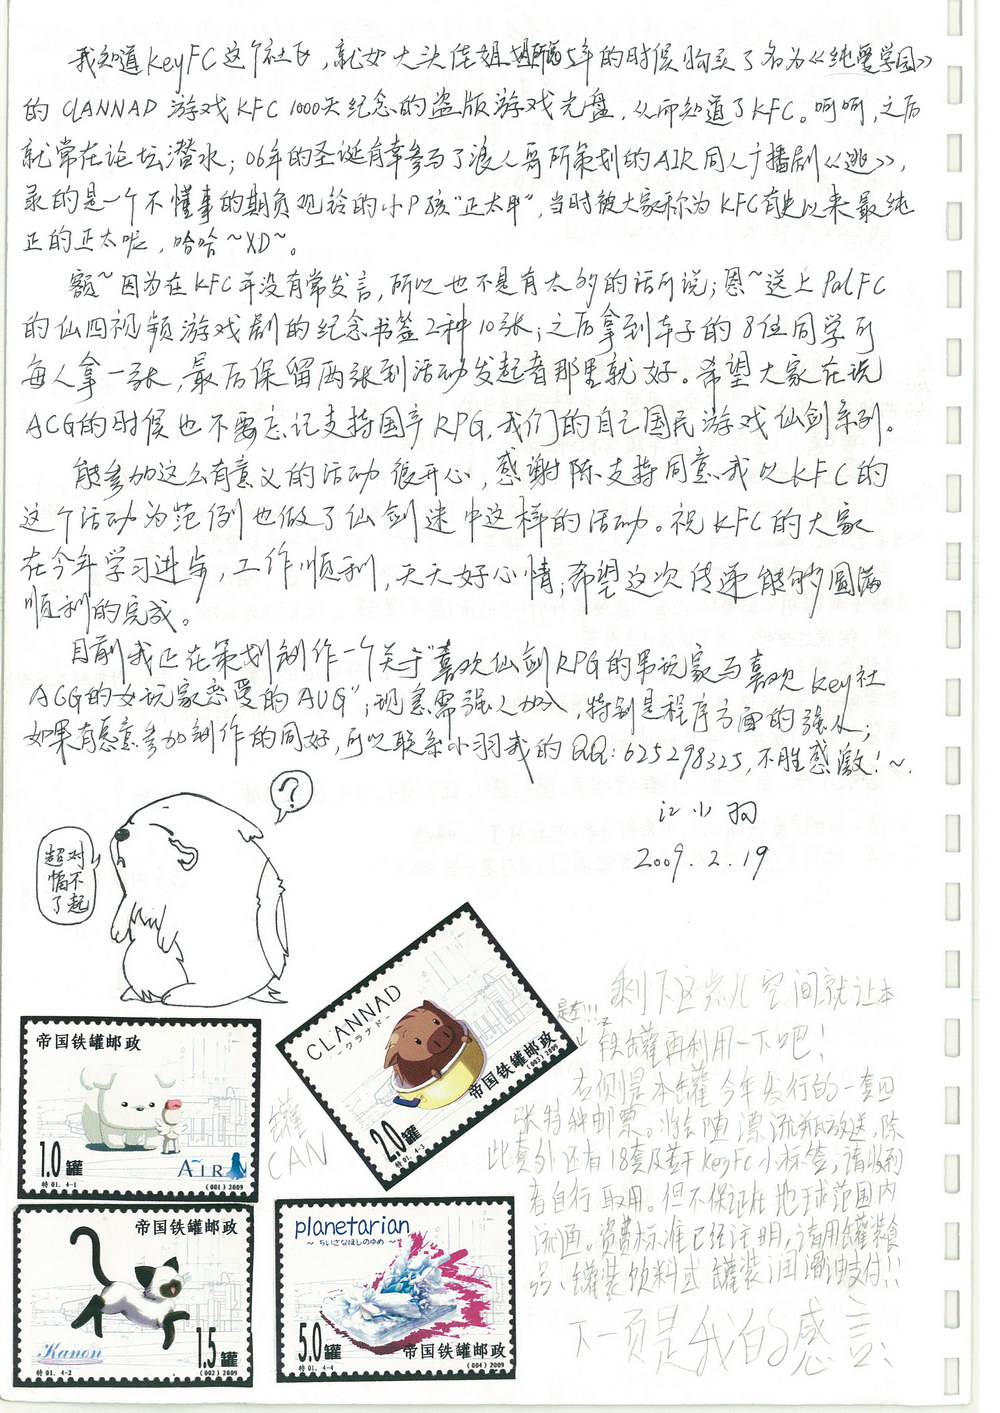 我知道KeyFC这个社区,就如大头佳姐姐所说5年的时候购买了名为《纯爱学园》
的CLANNAD游戏KFC 1000天纪念的盗版游戏光盘,从而知道了KFC。呵呵,之后
就常在论坛潜水;06年的圣诞有幸参与了浪人哥所策划的AIR同人广播剧《逃》,
录的是一个不懂事的期负观铃的小P孩“正太甲”,当时被大家称为KFC有史以来最纯
正的正太呢,哈哈~XD~。
额~因为在KFC并没有常发言,所以也不是有太多的话所说;恩~送上PalFC
的仙四视频游戏剧的纪念书签2种10张;之后拿到本子的8位同学可
每人拿一张,最后保留两张到活动发起者那里就好。希望大家在说
ACG的时候也不要忘记支持国产RPG,我们的自己国民游戏仙剑系列。
能参加这么有意义的活动很开心,感谢陈支持同意我以KFC的
这个活动为范例也做了仙剑迷中这样的活动。祝KFC的大家
在今年学习进步,工作顺利,天天好心情;希望这次传递能够圆满
顺利的完成。
目前我正在策划制作一个关于“喜欢仙剑RPG的男玩家与喜欢Key社
ACG的女玩家恋爱的AVG”;现急需强人加入,特别是程序方面的强人;
如果有愿意参加制作的同好,可以联系小羽我的QQ:625298325,不胜感激!~.
江小羽
2009.2.19
?
对不起
超幅了
剩下这点儿空间就让本
是在!!!
段罐再利用一下吧!
右侧是本罐今年发行的一套四
张特种邮票。将会随漂流瓶放送,除
此页外还有18套及若干KeyFC小标签,请收到
者自行取用。但不保证在地球范围内
流通。资费标准已经注明,请用罐装食
品、罐装饮料或罐装润滑油支付!!
下一页是我的感言
罐
CAN
CLANNAD
-クラナド-
帝国铁罐邮政
2.0罐
特01. 4-3
(003)2009
帝国铁罐邮政
1.0罐
AIR
特01. 4-1
(001)2009
帝国铁罐邮政
Kanon
1.5罐
特01. 4-2
(002)2009
planetarian
~ ちいさなほしのゆめ ~
5.0罐
帝国铁罐邮政
特01. 4-4
(004)2009